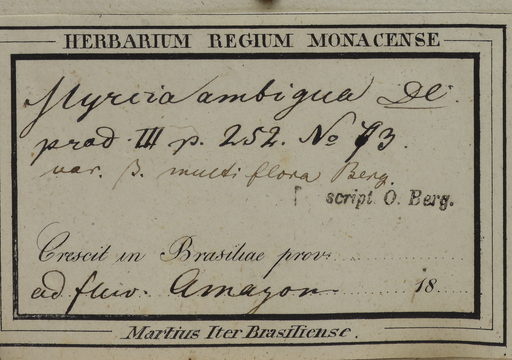 HERBARIUM REGIUM MONACENSE
Myrcia ambigua DC.
prod III p. 252. No 73.
var. β. multiflora Berg.
script. O. Berg.
Crescit in Brasiliae prov.
ad fluv. Amazon 18
Martius Iter Brasiliense.